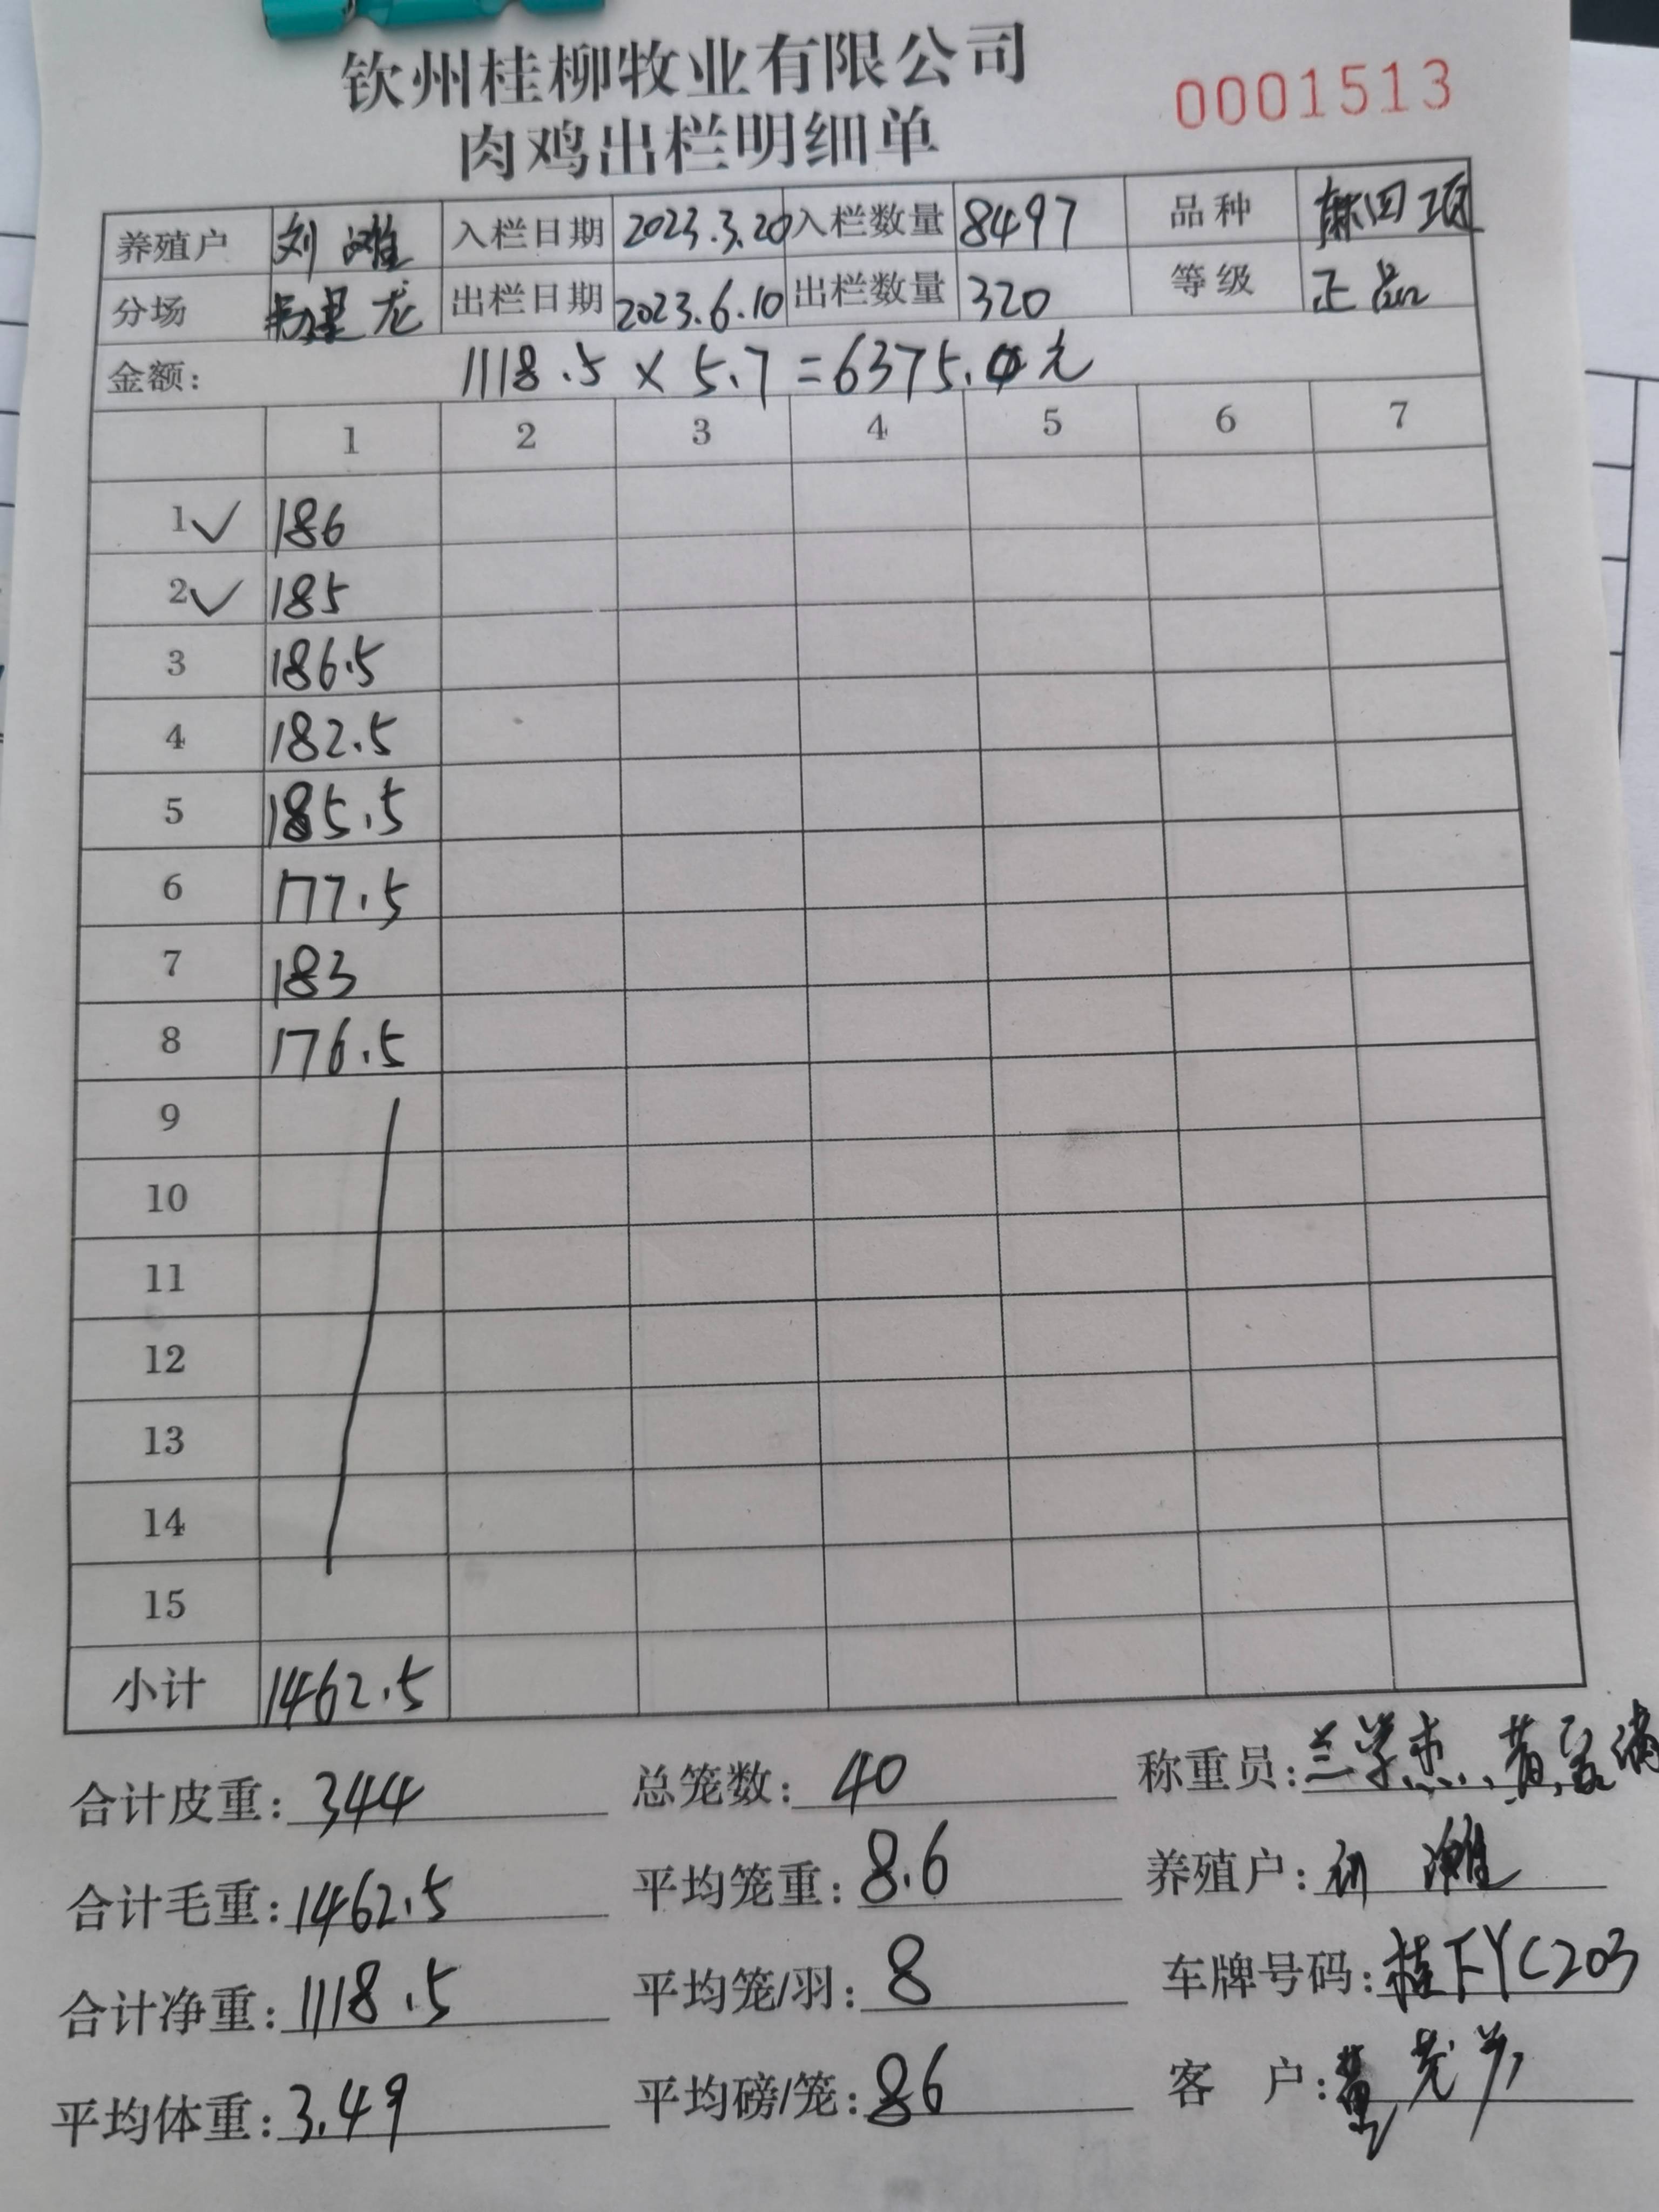 钦州桂柳牧业有限公司
0001513
肉鸡出栏明细单
养殖户 刘滩 入栏日期 2023.3.20 入栏数量 8497 品种 麻四项
分场 龙 出栏日期 2023.6.10 出栏数量 320 等级 正品
金额: 1118.5 × 5.7 = 6375.0元
1 2 3 4 5 6 7
1 ✓ 186
2 ✓ 185
3 186.5
4 182.5
5 185.5
6 177.5
7 183
8 176.5
9
10
11
12
13
14
15
小计 1462.5
合计皮重: 344 总笼数: 40 称重员: 兰学杰、黄
合计毛重: 1462.5 平均笼重: 8.6 养殖户: 刘滩
合计净重: 1118.5 平均笼/羽: 8 车牌号码: 桂FYC203
平均体重: 3.49 平均磅/笼: 86 客 户: